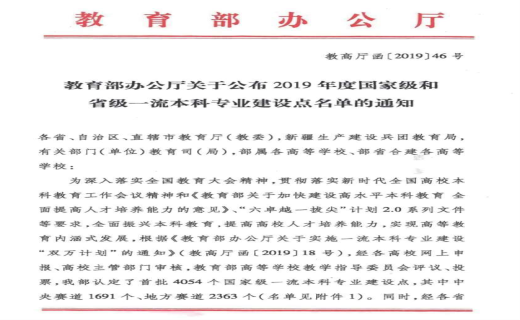 教育部办公厅
教高厅函[2019]46号
教育部办公厅关于公布2019年度国家级和
省级一流本科专业建设点名单的通知
各省、自治区、直辖市教育厅(教委),新疆生产建设兵团教育局,
有关部门(单位)教育司(局),部属各高等学校、部省合建各高等
学校:
为深入落实全国教育大会精神,贯彻落实新时代全国高校本
科教育工作会议精神和《教育部关于加快建设高水平本科教育 全
面提高人才培养能力的意见》、“六卓越一拔尖”计划2.0系列文件
等要求,全面振兴本科教育,提高高校人才培养能力,实现高等教
育内涵式发展,根据《教育部办公厅关于实施一流本科专业建设
“双万计划”的通知》(教高厅函[2019]18号),经各高校网上申
报、高校主管部门审核,教育部高等学校教学指导委员会评议、投
票,我部认定了首批4054个国家级一流本科专业建设点,其中中
央赛道1691个、地方赛道2363个(名单见附件1)。同时,经各省